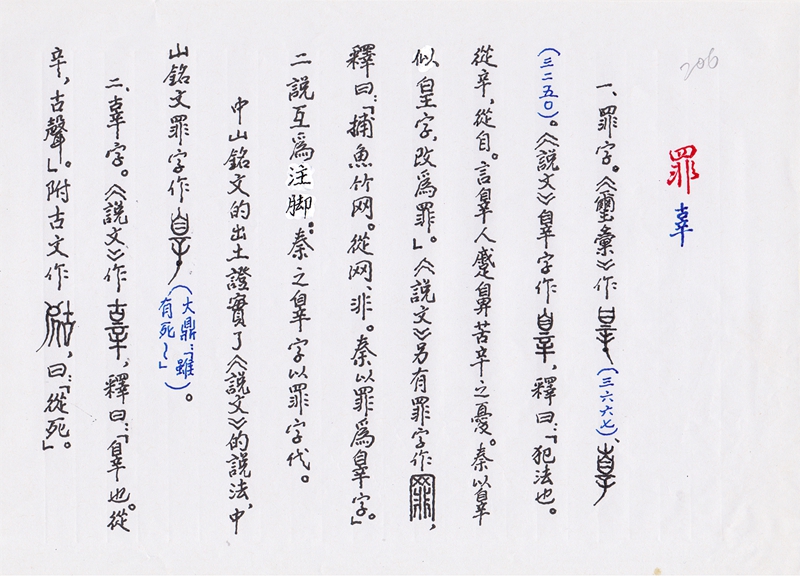 206
罪 辜
一、罪字。《璽彙》作(三六六七)、
(三二五〇)。《說文》辠字作,釋曰:「犯法也。
從辛,從自。言辠人蹙鼻苦辛之憂。秦以辠
似皇字,改爲罪。」《說文》另有罪字作,
釋曰:「捕魚竹网。從网、非。秦以罪爲辠字。」
二說互爲注脚:秦之辠字以罪字代。
中山銘文的出土證實了《說文》的說法,中
山銘文罪字作(大鼎:「雖有死~」)。
二、辜字。《說文》作,釋曰:「辠也。從
辛,古聲」。附古文作,曰:「從死」。